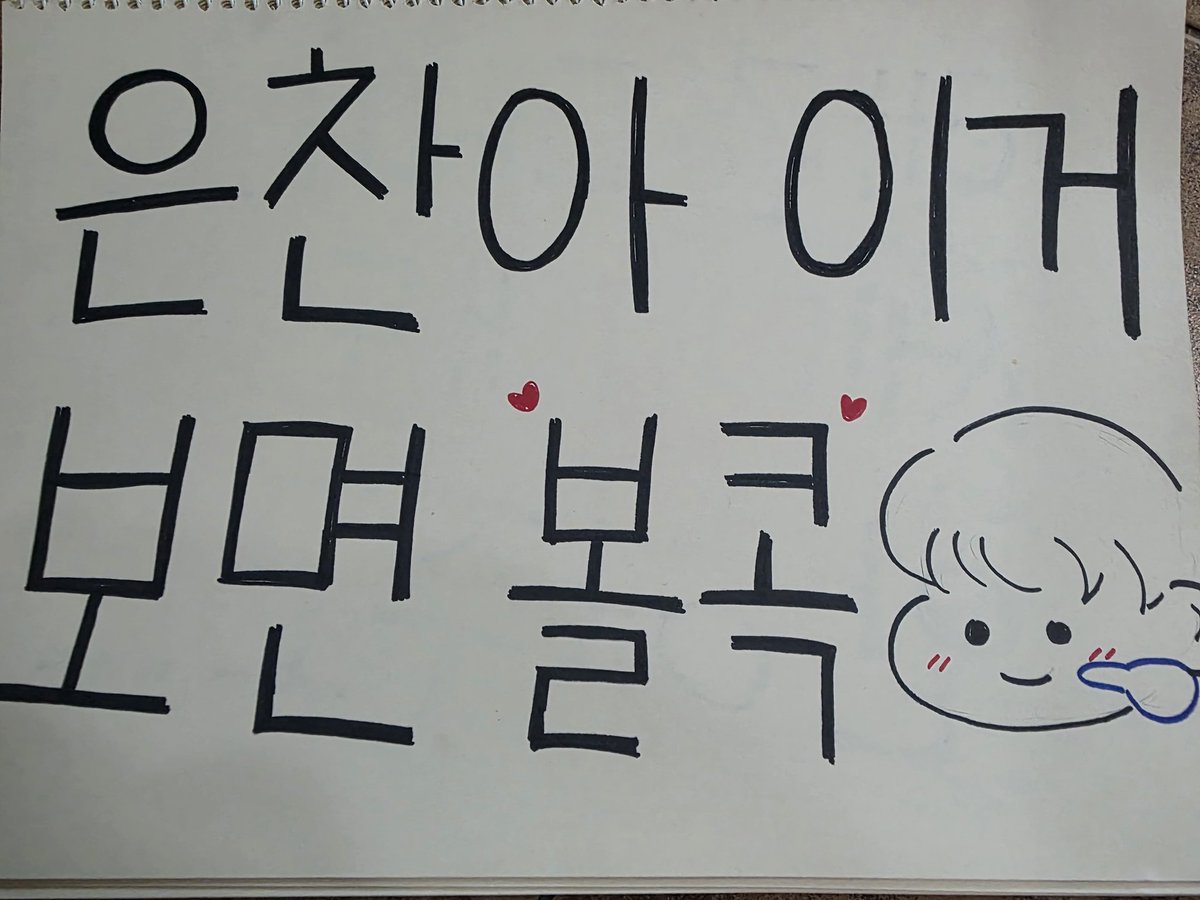 은찬아 이거
보면 볼콕